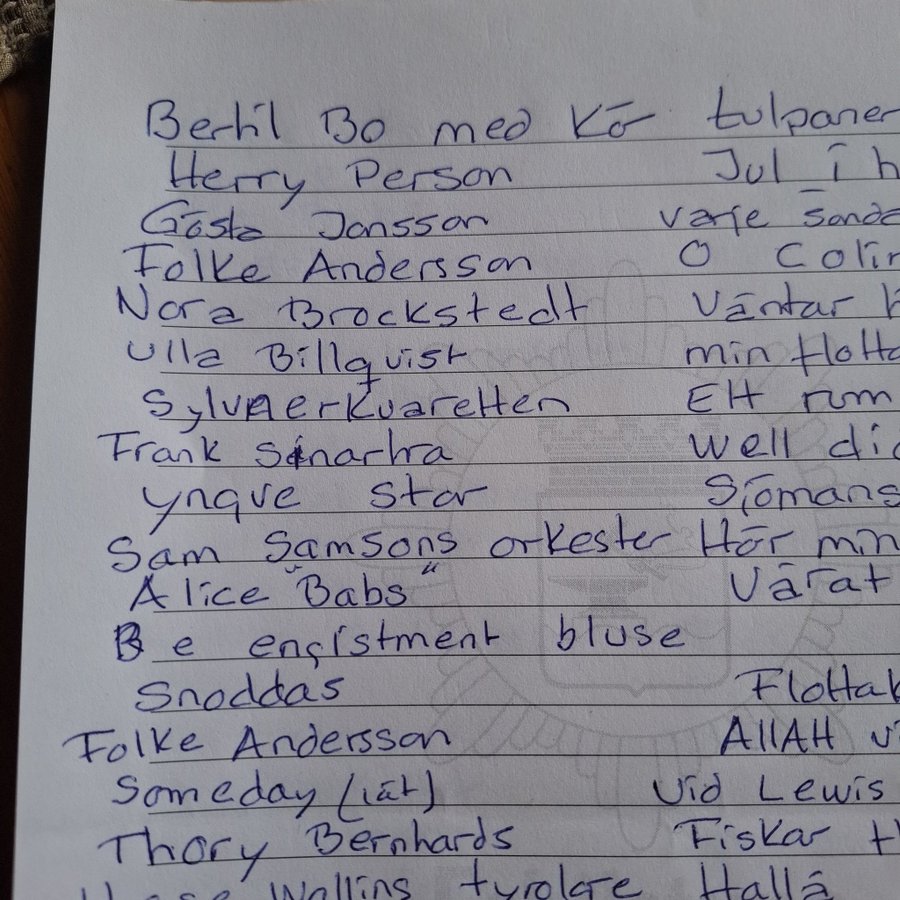 Bertil Bo med Kör tulpaner
Herry Person Jul i h
Gösta Jonsson varje sönda
Folke Andersson O Colin
Nora Brockstedt Väntar
Ulla Billqvist min flotta
Sylvnerkvaretten Ett rum
Frank Sinartra well did
yngve stor Sjömans
Sam Samsons orkester Hör min
Alice "Babs" Vårat
Be englstment bluse
Snoddas Flottak
Folke Andersson AllAH vi
Someday (låt) Vid Lewis
Thory Bernhards Fiskar
Wallins tyrolare Hallå